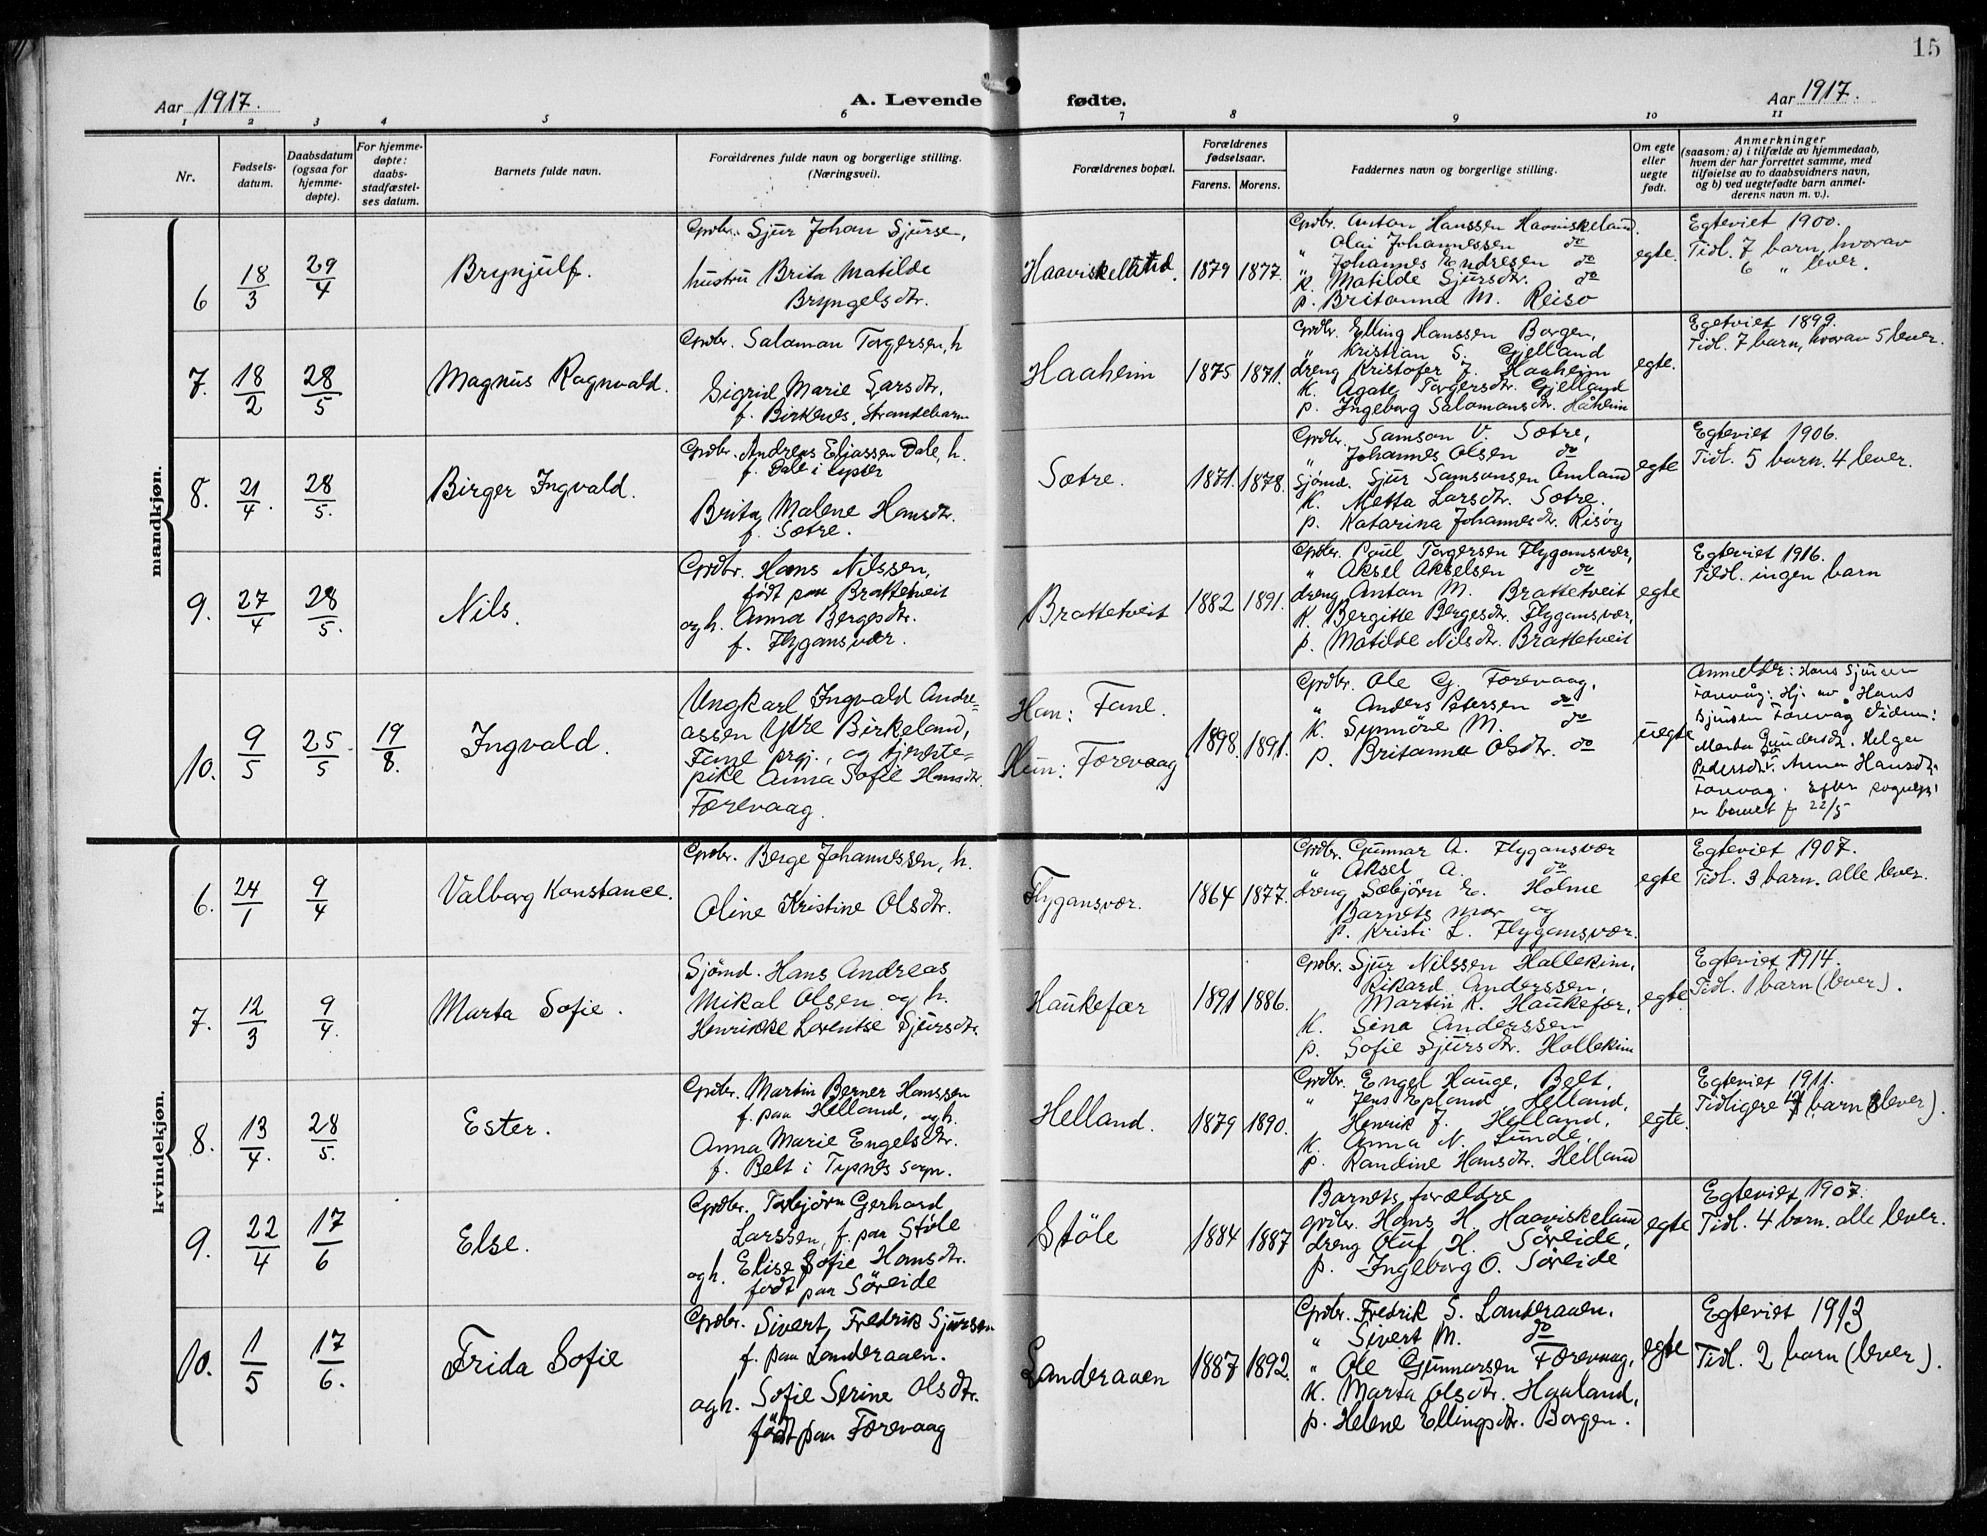 15
Aar 1917.
A. Levende fødte.
Aar 1917.
1 2 3 4 5 6 7 8 9 10 11
Nr.
Fødsels-
datum.
Daabsdatum
(ogsaa for
hjemme-
døpte).
For hjemme-
døpte:
daabs-
stadfæstel-
ses datum.
Barnets fulde navn.
Forældrenes fulde navn og borgerlige stilling.
(Næringsvei).
Forældrenes bopæl.
Forældrenes
fødselsaar.
Farens. Morens.
Faddernes navn og borgerlige stilling.
Om egte
eller
uegte
født.
Anmerkninger
(saasom: a) i tilfælde av hjemmedaab,
hvem der har forrettet samme, med
tilføielse av to daabsvidners navn,
og b) ved uegtefødte barn anmel-
derens navn m. v.).
mandkjøn.
6
18/3
29/4
Brynjulf.
Grdbr. Sjur Johan Sjursen,
hustru Brita Matilde
Bryngelsdtr.
Haaviskeland.
1879
1877.
Grdbr. Anton Hanssen Haaviskeland.
" Olai Johannessen do
" Johannes Endresen do
K. Matilde Sjursdtr. do
p. Britanna M. Reisø
egte.
Egteviet 1900.
Tidl. 7 barn, hvorav
6 " lever.
7.
18/2
28/5
Magnus Ragnvald.
Grdbr. Salamon Torgersen, h
Sigrid Marie Larsdtr.
f. Birkenes, Strandebarm
Haaheim
1875
1871.
Grdbr. Elling Hanssen Borgen,
" Kristian S. Gjelland
dreng Kristofer J. Haaheim
K. Agate Torgersdtr. Gjelland
p. Ingeborg Salamonsdtr. Håheim
egte.
Egteviet 1899.
Tidl. 7 barn, hvorav 5 lever.
8.
21/4.
28/5.
Birger Ingvald.
Grdbr. Andreas Eliassen Dale, h.
f. Dale i Lyster
Brita Malene Hansdtr.
f. Sætre.
Sætre.
1871.
1878.
Grdbr. Samson V. Sætre,
" Johannes Olsen do
Sjømd. Sjur Samsonsen Amland
K. Metta Larsdtr. Sætre.
p. Katarina Johannesdtr. Risöy
egte
Egteviet 1906.
Tidl. 5 barn. 4 lever.
9.
27/4
28/5.
Nils.
Grdbr. Hans Nilssen,
født paa Brattetveit
og h. Anna Bergesdtr.
f. Flygansvær.
Brattetveit
1882
1891.
Grdbr. Paul Torgersen Flygansvær,
" Aksel Akselsen do
dreng Anton M. Brattetveit
K. Bergitte Bergesdtr. Flygansvær,
p. Matilde Nilsdtr. Brattetveit
egte
Egteviet 1916.
Tidl. ingen barn
10.
9/5
25/5
19/8.
Ingvald.
Ungkarl Ingvald Andre=
assen Ytre Birkeland,
Fane prgj., og tjeneste-
pike Anna Sofie Hansdtr.
Færevaag.
Han: Fane.
Hun: Færevaag
1898.
1891.
Grdbr. Ole G. Færevaag,
" Anders Petersen do
K. Synnöve M. do
p. Britanna Olsdtr. do
uegte
Anmelder: Hans Sjursen
Færevåg: Hj. av Hans
Sjursen Færevåg Vidner:
Marta Gundersdtr. Helga
Pedersdtr. Anna Hansdtr.
Færevag. Efter
er barnet f 22/5
kvindekjøn.
6.
24/1
9/4
Valborg Konstance.
Grdbr. Berge Johannessen, h.
Oline Kristine Olsdtr.
Flygansvær.
1864
1877.
Grdbr. Gunnar A. Flygansvær
" Aksel A. do
dreng Sæbjörn E. Holme
Barnets mor og
p. Kristi L. Flygansvær.
egte
Egteviet 1907.
Tidl. 3 barn. alle lever.
7.
12/3
9/4.
Marta Sofie.
Sjömd. Hans Andreas
Mikal Olsen og h.
Henrikke Lorentse Sjursdtr.
Haukefær
1891
1886.
Grdbr. Sjur Nilssen Hallekim,
Rikard Anderssen,
Martin K. Haukefær,
K. Sina Anderssen
p. Sofie Sjursdtr. Hallekim
egte.
Egteviet 1914.
Tidl. 1 barn (lever).
8.
13/4.
28/5.
Ester.
Grdbr. Martin Berner Hanssen
f. paa Helland, og h.
Anna Marie Engelsdtr.
f. Belt i Tysnes sogn.
Helland.
1879
1890.
Grdbr. Engel Hauge, Belt,
" Jens Epland Helland,
Henrik J. Helland,
K. Anna N. Lunde,
p. Randine Hansdtr. Helland
egte.
Egteviet 1911.
Tidligere barn (lever).
9.
22/4
17/6
Else.
Grdbr. Torbjörn Gerhard
Larssen, f. paa Støle
og h. Elise Sofie Hansdtr.
født paa Söreide
Støle
1884
1887
Barnets forældre
grdbr. Hans H. Haaviskeland
dreng Oluf H. Söreide,
p. Ingeborg O. Söreide
egte
Egteviet 1907.
Tidl. 4 barn. alle lever.
10.
1/5
17/6.
Frida Sofie
Grdbr. Sivert Fredrik Sjursen
f. paa Landeraaen.
og h. Sofie Serine Olsdtr.
født paa Færevaag
Landeraaen
1887
1892.
Grdbr. Fredrik S. Landeraaen.
" Sivert M. do
" Ole Gunnarsen Færevaag,
K. Marta Olsdtr. Haaland,
p. Helene Ellingsdtr. Borgen.
egte
Egteviet 1913
Tidl. 2 barn (lever).